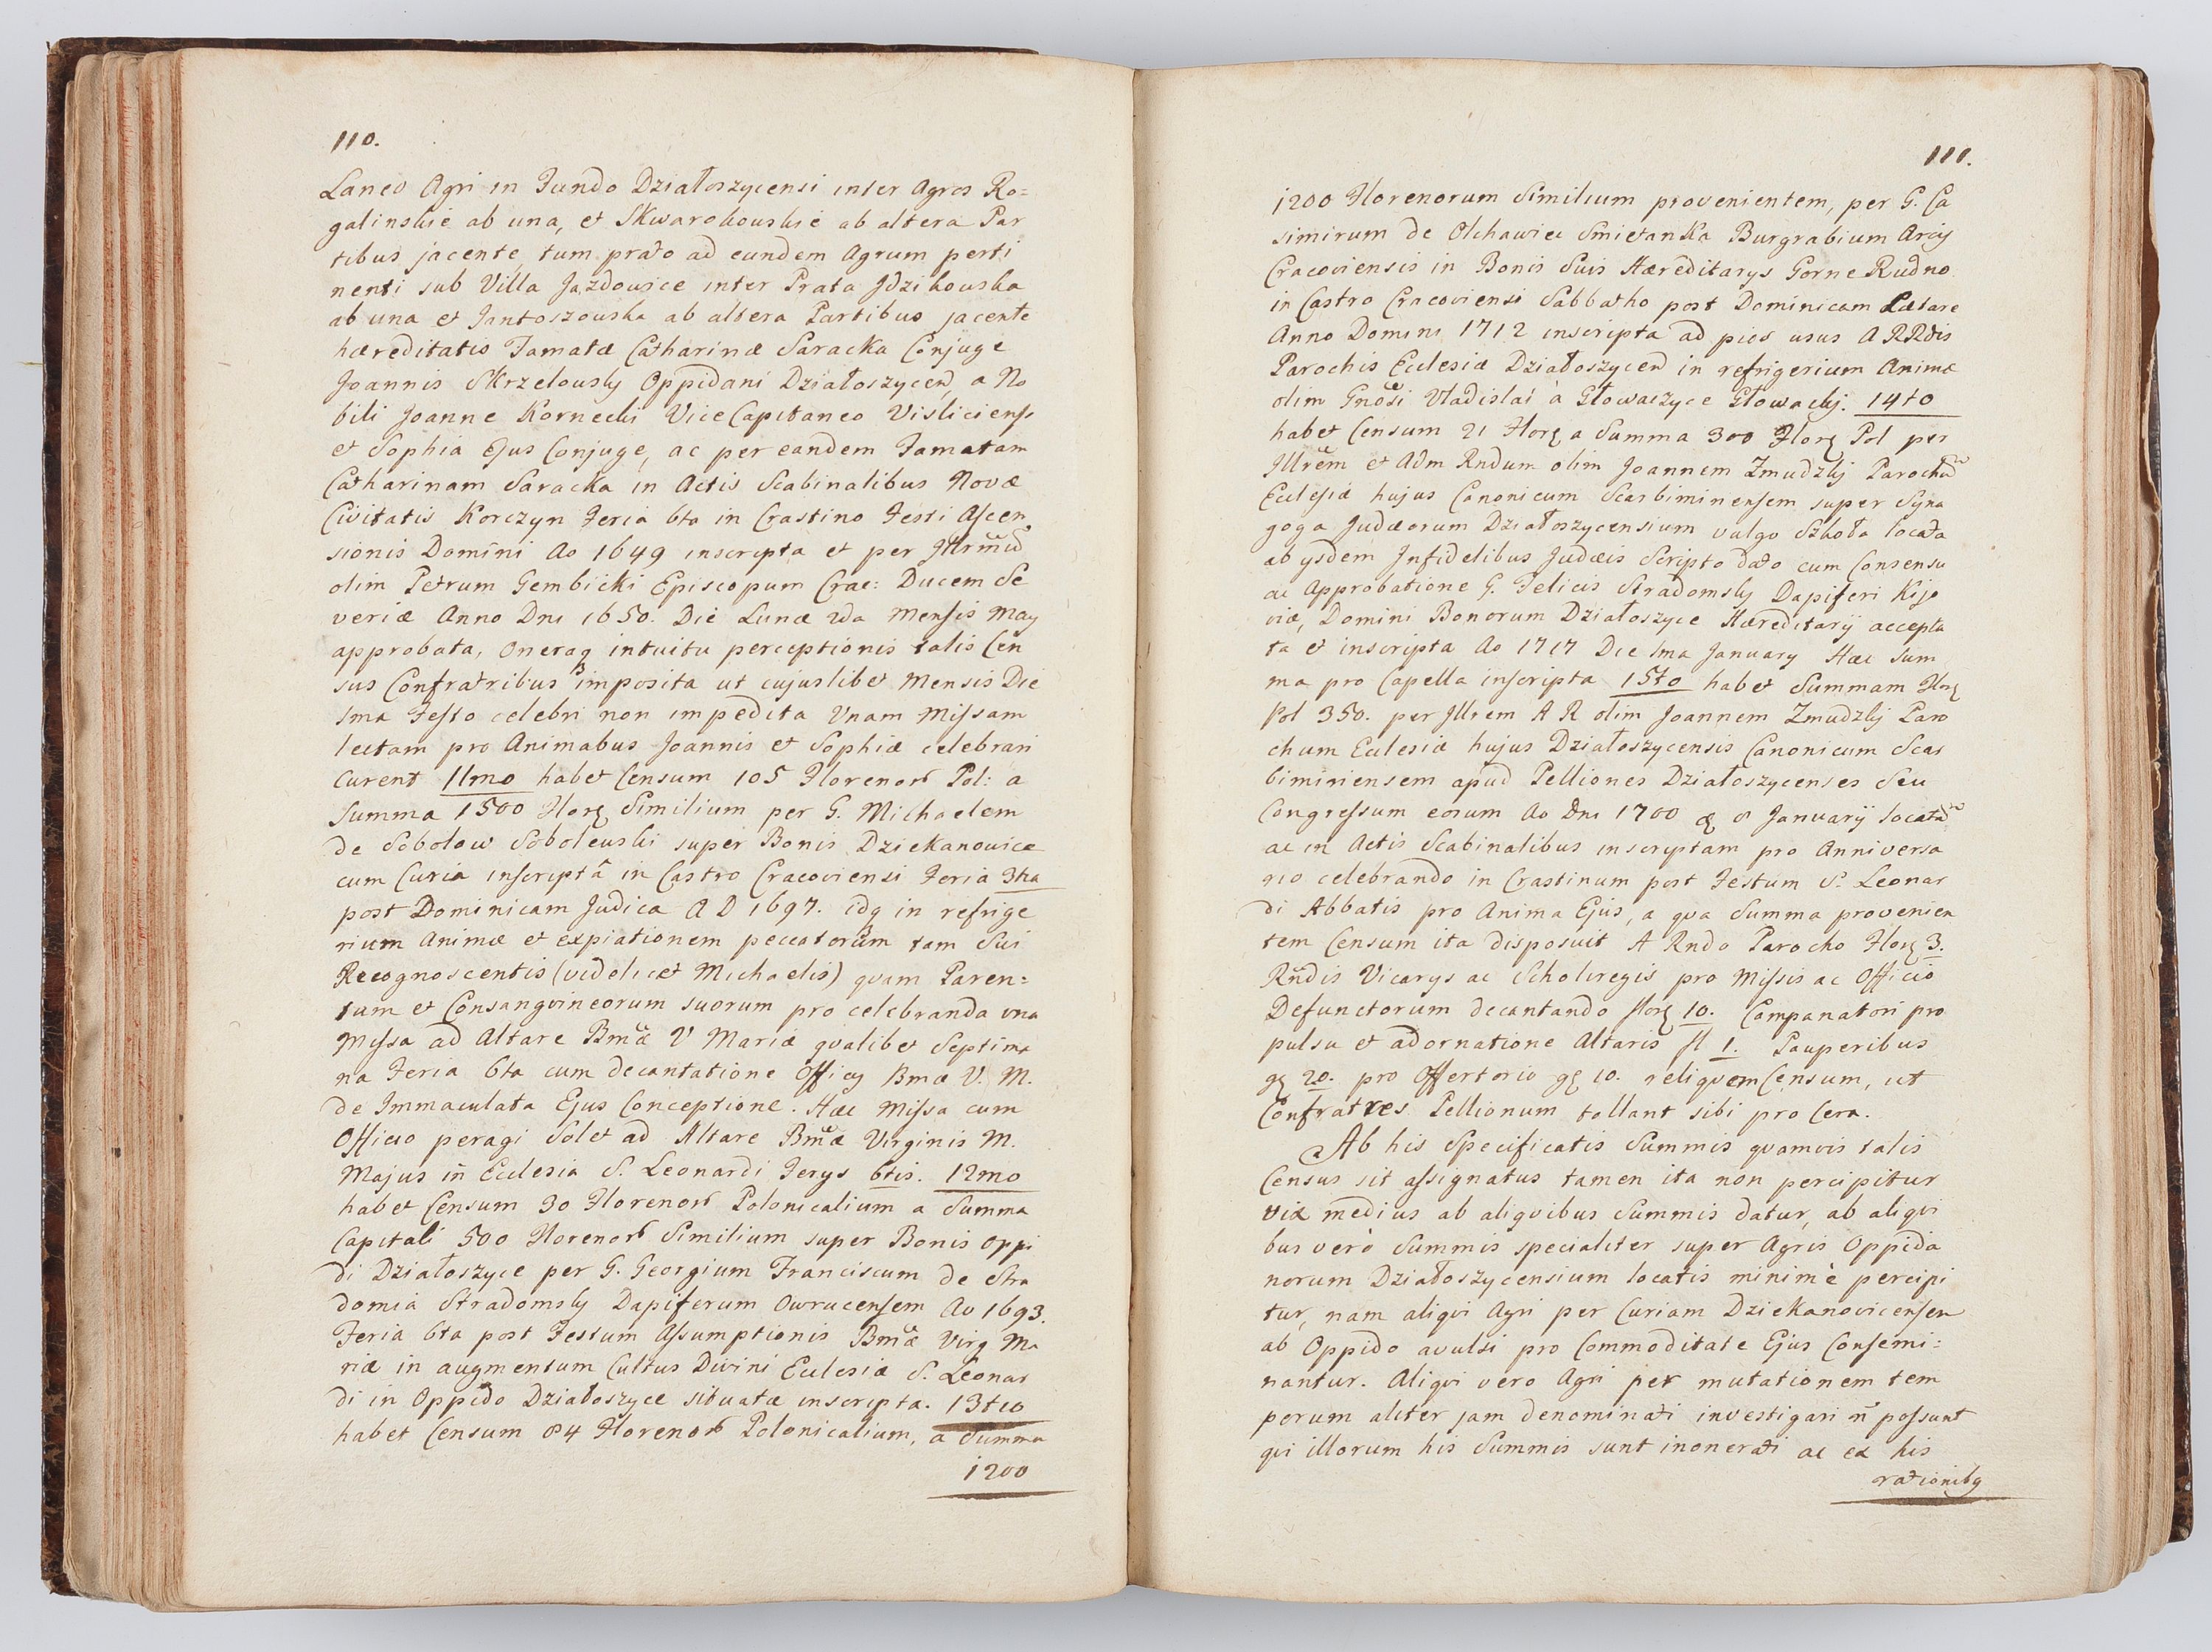 110.
Laneo Agri in Fundo Działoszycensi inter Agros Ro=
galinskie ab una, et Skwarokouskie ab altera Par
tibus jacente, tum prato ad eundem Agrum perti
nenti sub Villa Jazdowice inter Prata Jdzikouska
ab una et Jantoszouska ab altera Partibus jacente
hæreditatis Famatæ Catharinæ Saracka Conjuge
Joannis Skrzelousky Oppidani Działoszycen, a No
bili Joanne Kornecki Vice Capitaneo Visliciens
et Sophia Ejus Conjuge, ac per eandem Famatam
Catharinam Saracka in Actis Scabinalibus Novæ
Civitatis Korczyn Feria 6ta in Crastino Festi Ascen
sionis Domini Ao 1649 inscripta et per Jllrmu
olim Petrum Gembicki Episcopum Crac: Ducem Se
veriæ Anno Dni 1650. Die Lunæ 2da Mensis May
approbata, oneraq intuitu perceptionis talis Cen
sus Confratribus imposita ut cujuslibet Mensis Die
1ma Festo celebri non impedita Vnam Missam
lectam pro Animabus Joannis et Sophiæ celebrari
Curent 11mo habet Censum 105 Florenor Pol: a
Summa 1500 Flor Similium per G. Michaelem
de Sobolow Soboleuski super Bonis Dziekanowice
cum Curia inscriptâ in Castro Cracoviensi Feria 3tia
post Dominicam Judica A D 1697. idq in refrige
rium Animæ et expiationem peccatorum tam Sui
Recognoscentis (videlicet Michaelis) qvam Paren=
tum et Consangvineorum suorum pro celebranda una
Missa ad Altare Bmæ V Mariæ qvalibet Septima
na Feria 6ta cum decantatione Officy Bmæ V. M.
de Immaculata Ejus Conceptione. Hæc Missa cum
Officio peragi Solet ad Altare Bmæ Virginis M.
Majus in Ecclesia S. Leonardi Ferys 6tis. 12mo
habet Censum 30 Florenor Polonicalium a Summa
Capitali 500 Florenor Similium super Bonis Oppi
di Działoszyce per G. Georgium Franciscum de Stra
domia Stradomsky Dapiferum Owrucensem Ao 1693.
Feria 6ta post Festum Assumptionis Bmæ Virg Ma
riæ in augmentum Cultus Divini Ecclesiæ S. Leonar
di in Oppido Działoszyce situatæ inscripta. 13tio
habet Censum 84 Florenor Polonicalium, a Summa
1200
111.
1200 Florenorum Similium provenientem, per G. Ca
simirum de Olchawice Smietanka Burgrabium Arcis
Cracoviensis in Bonis Suis Hæreditarys Gorne Rudno
in Castro Cracoviensi Sabbatho post Dominicam Lætare
Anno Domini 1712 inscripta ad pios usus A RRdis
Parochis Ecclesiæ Działoszycen in refrigerium Animæ
olim Gnosi Vladislai à Głowaczyce Głowacky. 14to
habet Censum 21 Flor a Summa 300 Flor Pol per
Jllrem et Adm Rndum olim Joannem Zmudzky Parochu
Ecclesiæ hujus Canonicum Scarbimiriensem super Syna
goga Judæorum Działoszycensium vulgo Szkoła locata
ab ysdem Jnfidelibus Judæis Scripto dato cum Consensu
ac Approbatione G. Felicis Stradomsky Dapiferi Kijo
viæ, Domini Bonorum Działoszyce Hæreditarij accepta
ta et inscripta Ao 1717 Die 1ma January Hæc Sum
ma pro Capella inscripta 15to habet Summam Flor
Pol 350. per Jllrem A R olim Joannem Zmudzky Paro
chum Ecclesiæ hujus Działoszycensis Canonicum Scar
bimiriensem apud Pelliones Działoszycenses Seu
Congressum eorum Ao Dni 1700 8 Januarij locatā
ac in Actis Scabinalibus inscriptam pro Anniversa
rio celebrando in Crastinum post Festum S. Leonar
di Abbatis pro Anima Ejus, a qva Summa provenien
tem Censum ita disposuit A Rndo Parocho Flor 3.
Rndis Vicarys ac Scholiregis pro Missis ac Officio
Defunctorum decantando flor 10. Campanatori pro
pulsu et adornatione Altaris fl 1. Pauperibus
gr 20. pro Offertorio gr 10. reliqvem Censum, ut
Confratres Pellionum tollant sibi pro Cera.
Ab his Specificatis Summis qvamvis talis
Census sit assignatus tamen ita non percipitur
vix medius ab aliqvibus Summis datur, ab aliqvi
bus verò Summis specialiter super Agris Oppida
norum Działoszycensium locatis minimè percipi
tur, nam aliqvi Agri per Curiam Dziekanovicensem
ab Oppido avulsi pro Commoditate Ejus Consemi=
nantur. Aliqvi vero Agri per mutationem tem
porum aliter jam denominati investigari n possunt
qvi illorum his Summis sunt inonerati ac ex his
rationibq